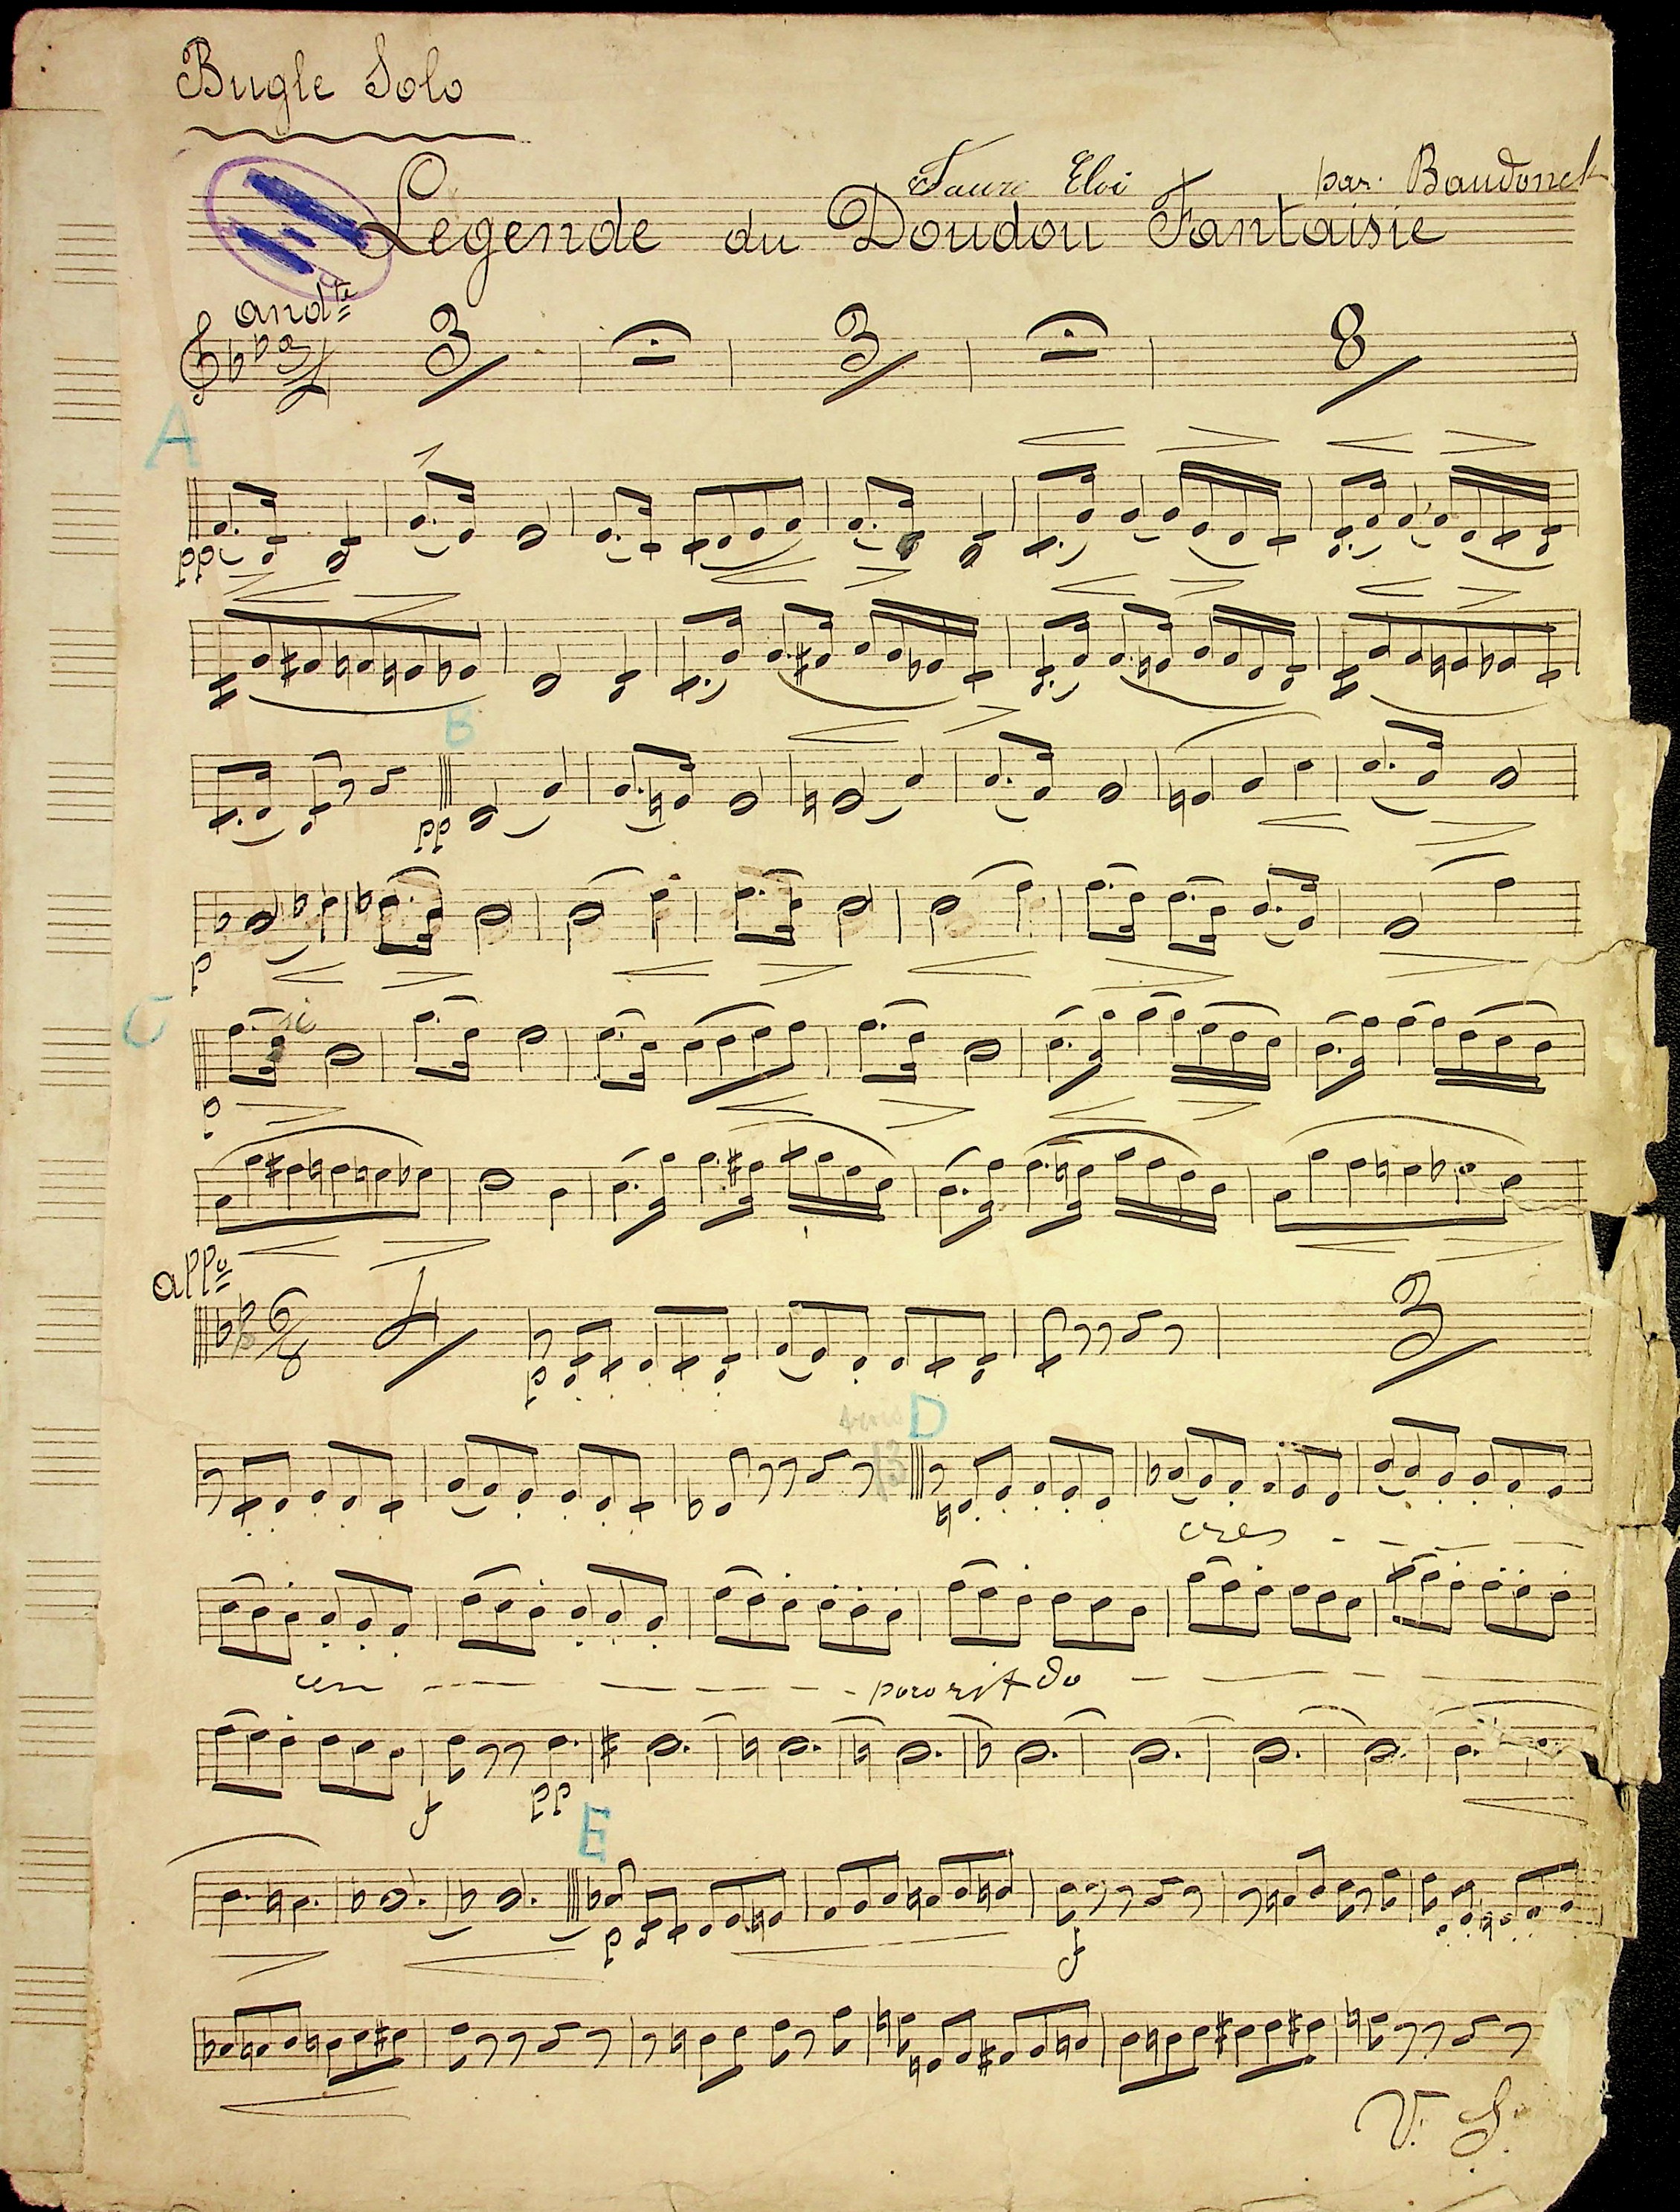 Bugle Solo
Faure Eloi par. Baudonck
Legende du Doudou Fantaisie
andte
3 3 8
A
pp
B
pp
p
C
p
allo
6/8 4 p 3
D
cres
cen poco rit do
f pp
E
p f
V. S.